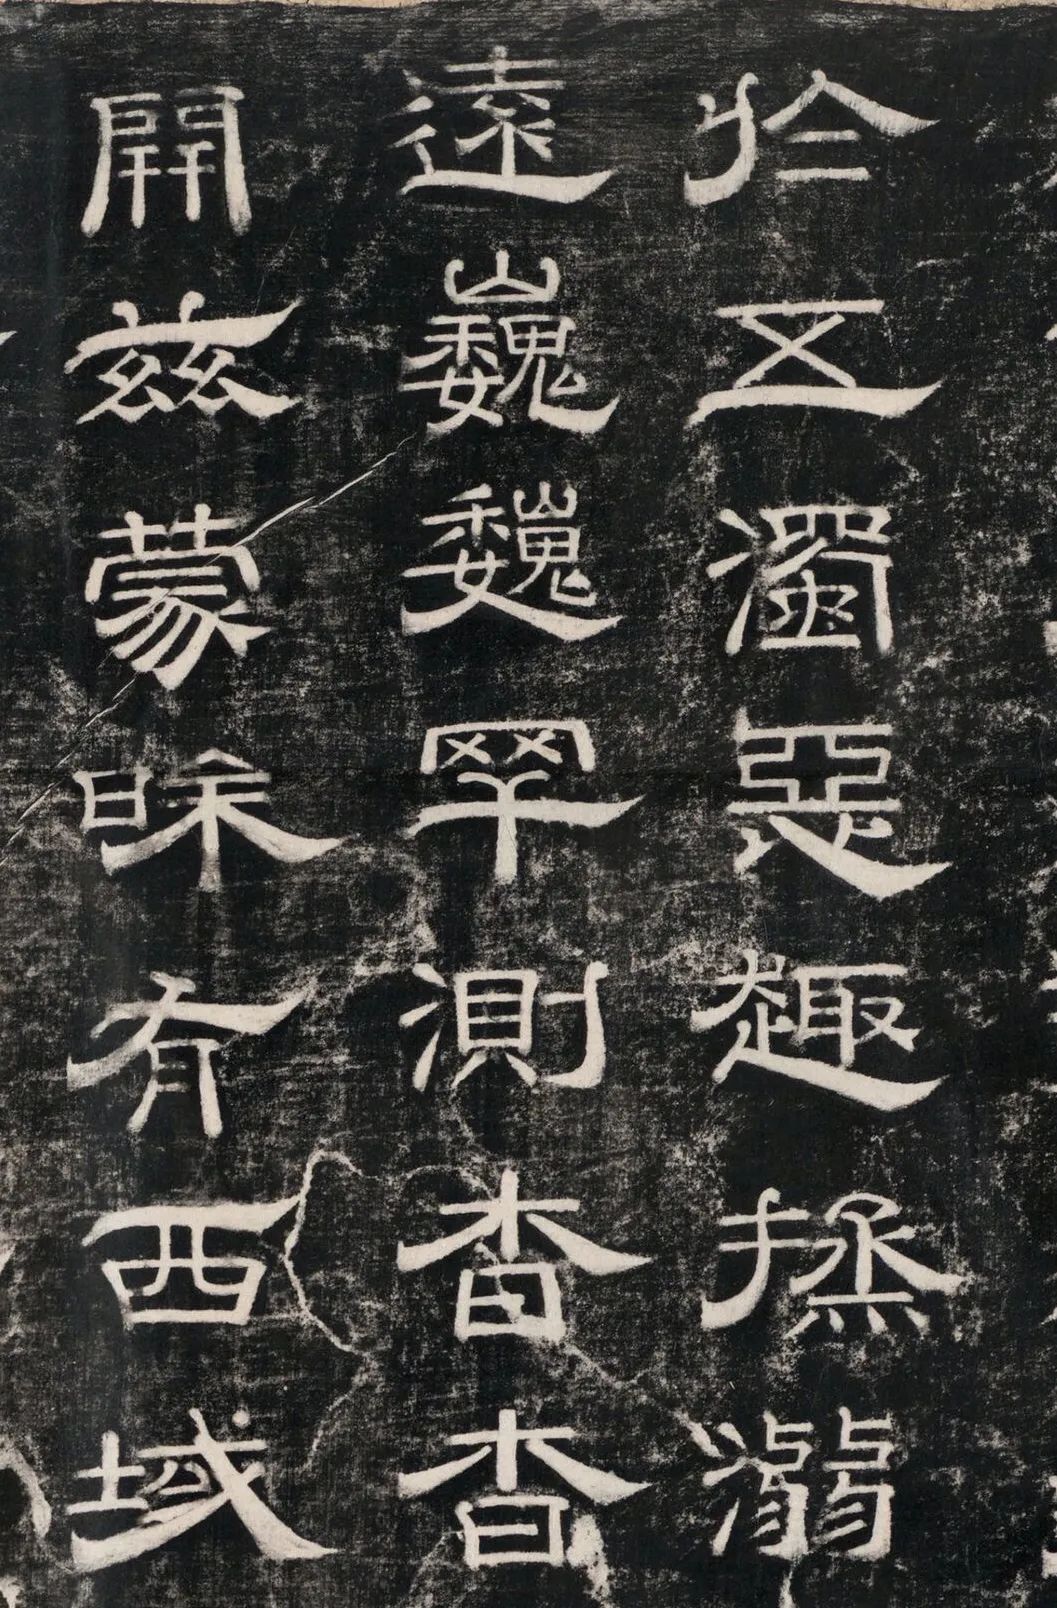 於五濁惡趣拯溺
遠巍巍罕測杳杳
開茲蒙昧有西域